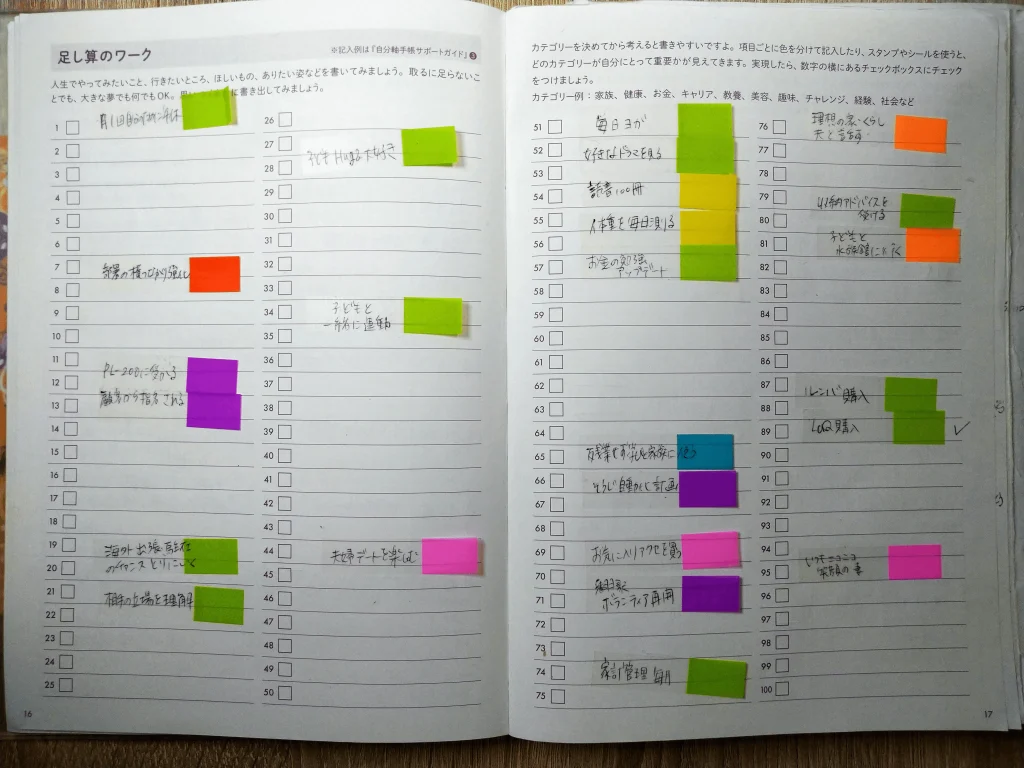 足し算のワーク
※記入例は『自分軸手帳サポートガイド』❸
人生でやってみたいこと、行きたいところ、ほしいもの、ありたい姿などを書いてみましょう。取るに足らないこ
とでも、大きな夢でも何でもOK。 に書き出してみましょう。
1
2
3
4
5
6
7
8
9
10
11
PL-200に受かる
12
顧客から指名される
13
14
15
16
17
18
19
海外出張
20
21
相手の立場を理解
22
23
24
25
26
27
子ども Hug
28
29
30
31
32
33
子どもと
34
一緒に運動
35
36
37
38
39
40
41
42
43
44
夫婦デートを楽しむ
45
46
47
48
49
50
16
カテゴリーを決めてから考えると書きやすいですよ。項目ごとに色を分けて記入したり、スタンプやシールを使うと、
どのカテゴリーが自分にとって重要かが見えてきます。実現したら、数字の横にあるチェックボックスにチェック
をつけましょう。
カテゴリー例：家族、健康、お金、キャリア、教養、美容、趣味、チャレンジ、経験、社会など
51
毎日ヨガ
52
好きなドラマを見る
53
54
読書100冊
55
体重を毎日測る
56
お金の勉強
57
アップデート
58
59
60
61
62
63
64
65
残業せず 家族に使う
66
そうじ自動化 計画
67
68
69
お気に入りアクセを買う
70
71
ボランティア再開
72
73
74
家計管理 毎月
75
76
理想の家・くらし
77
78
79
アドバイスを
80
受ける
81
子どもと
水族館に行く
82
83
84
85
86
87
ルンバ購入
88
89
購入
90
91
92
93
94
いつもニコニコ
95
笑顔の妻
96
97
98
99
100
17